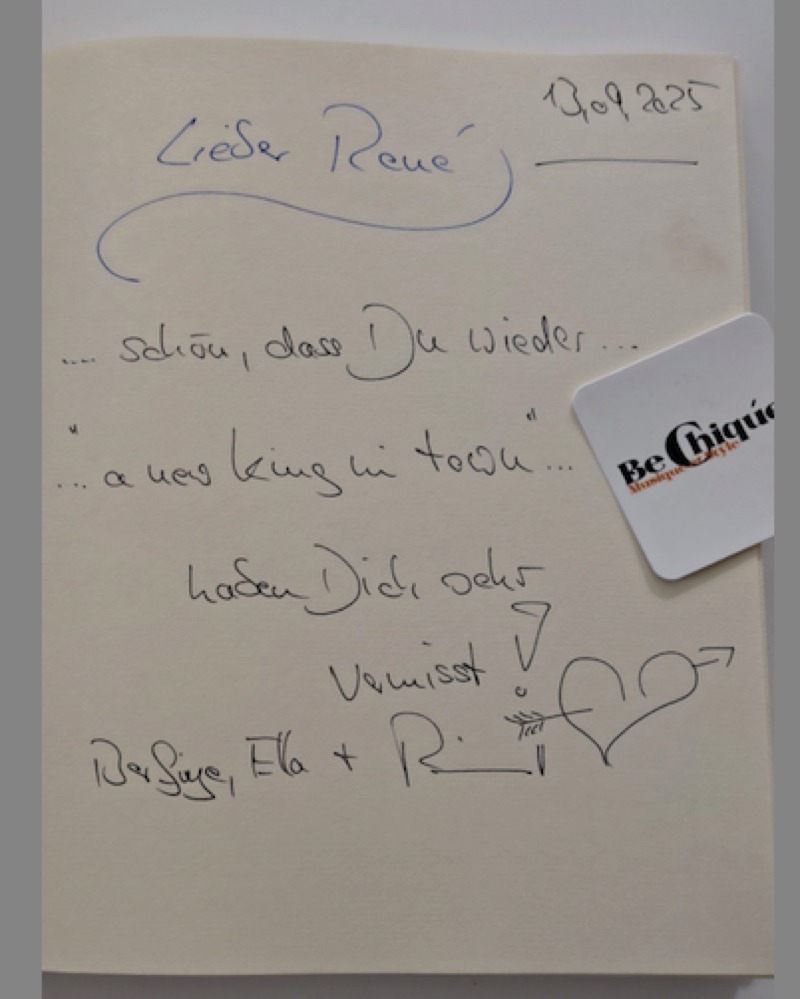 13,09,2025
Lieber René
.... schön, dass Du wieder ...
"... a new king in town" ...
haben Dich sehr
vermisst !
Ella +
Be Chiqué
Musique Style